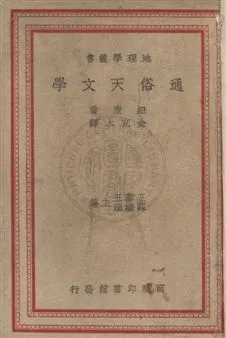 地理學叢書
通俗天文學
紐康著
金克木譯
主編
商務印書館發行